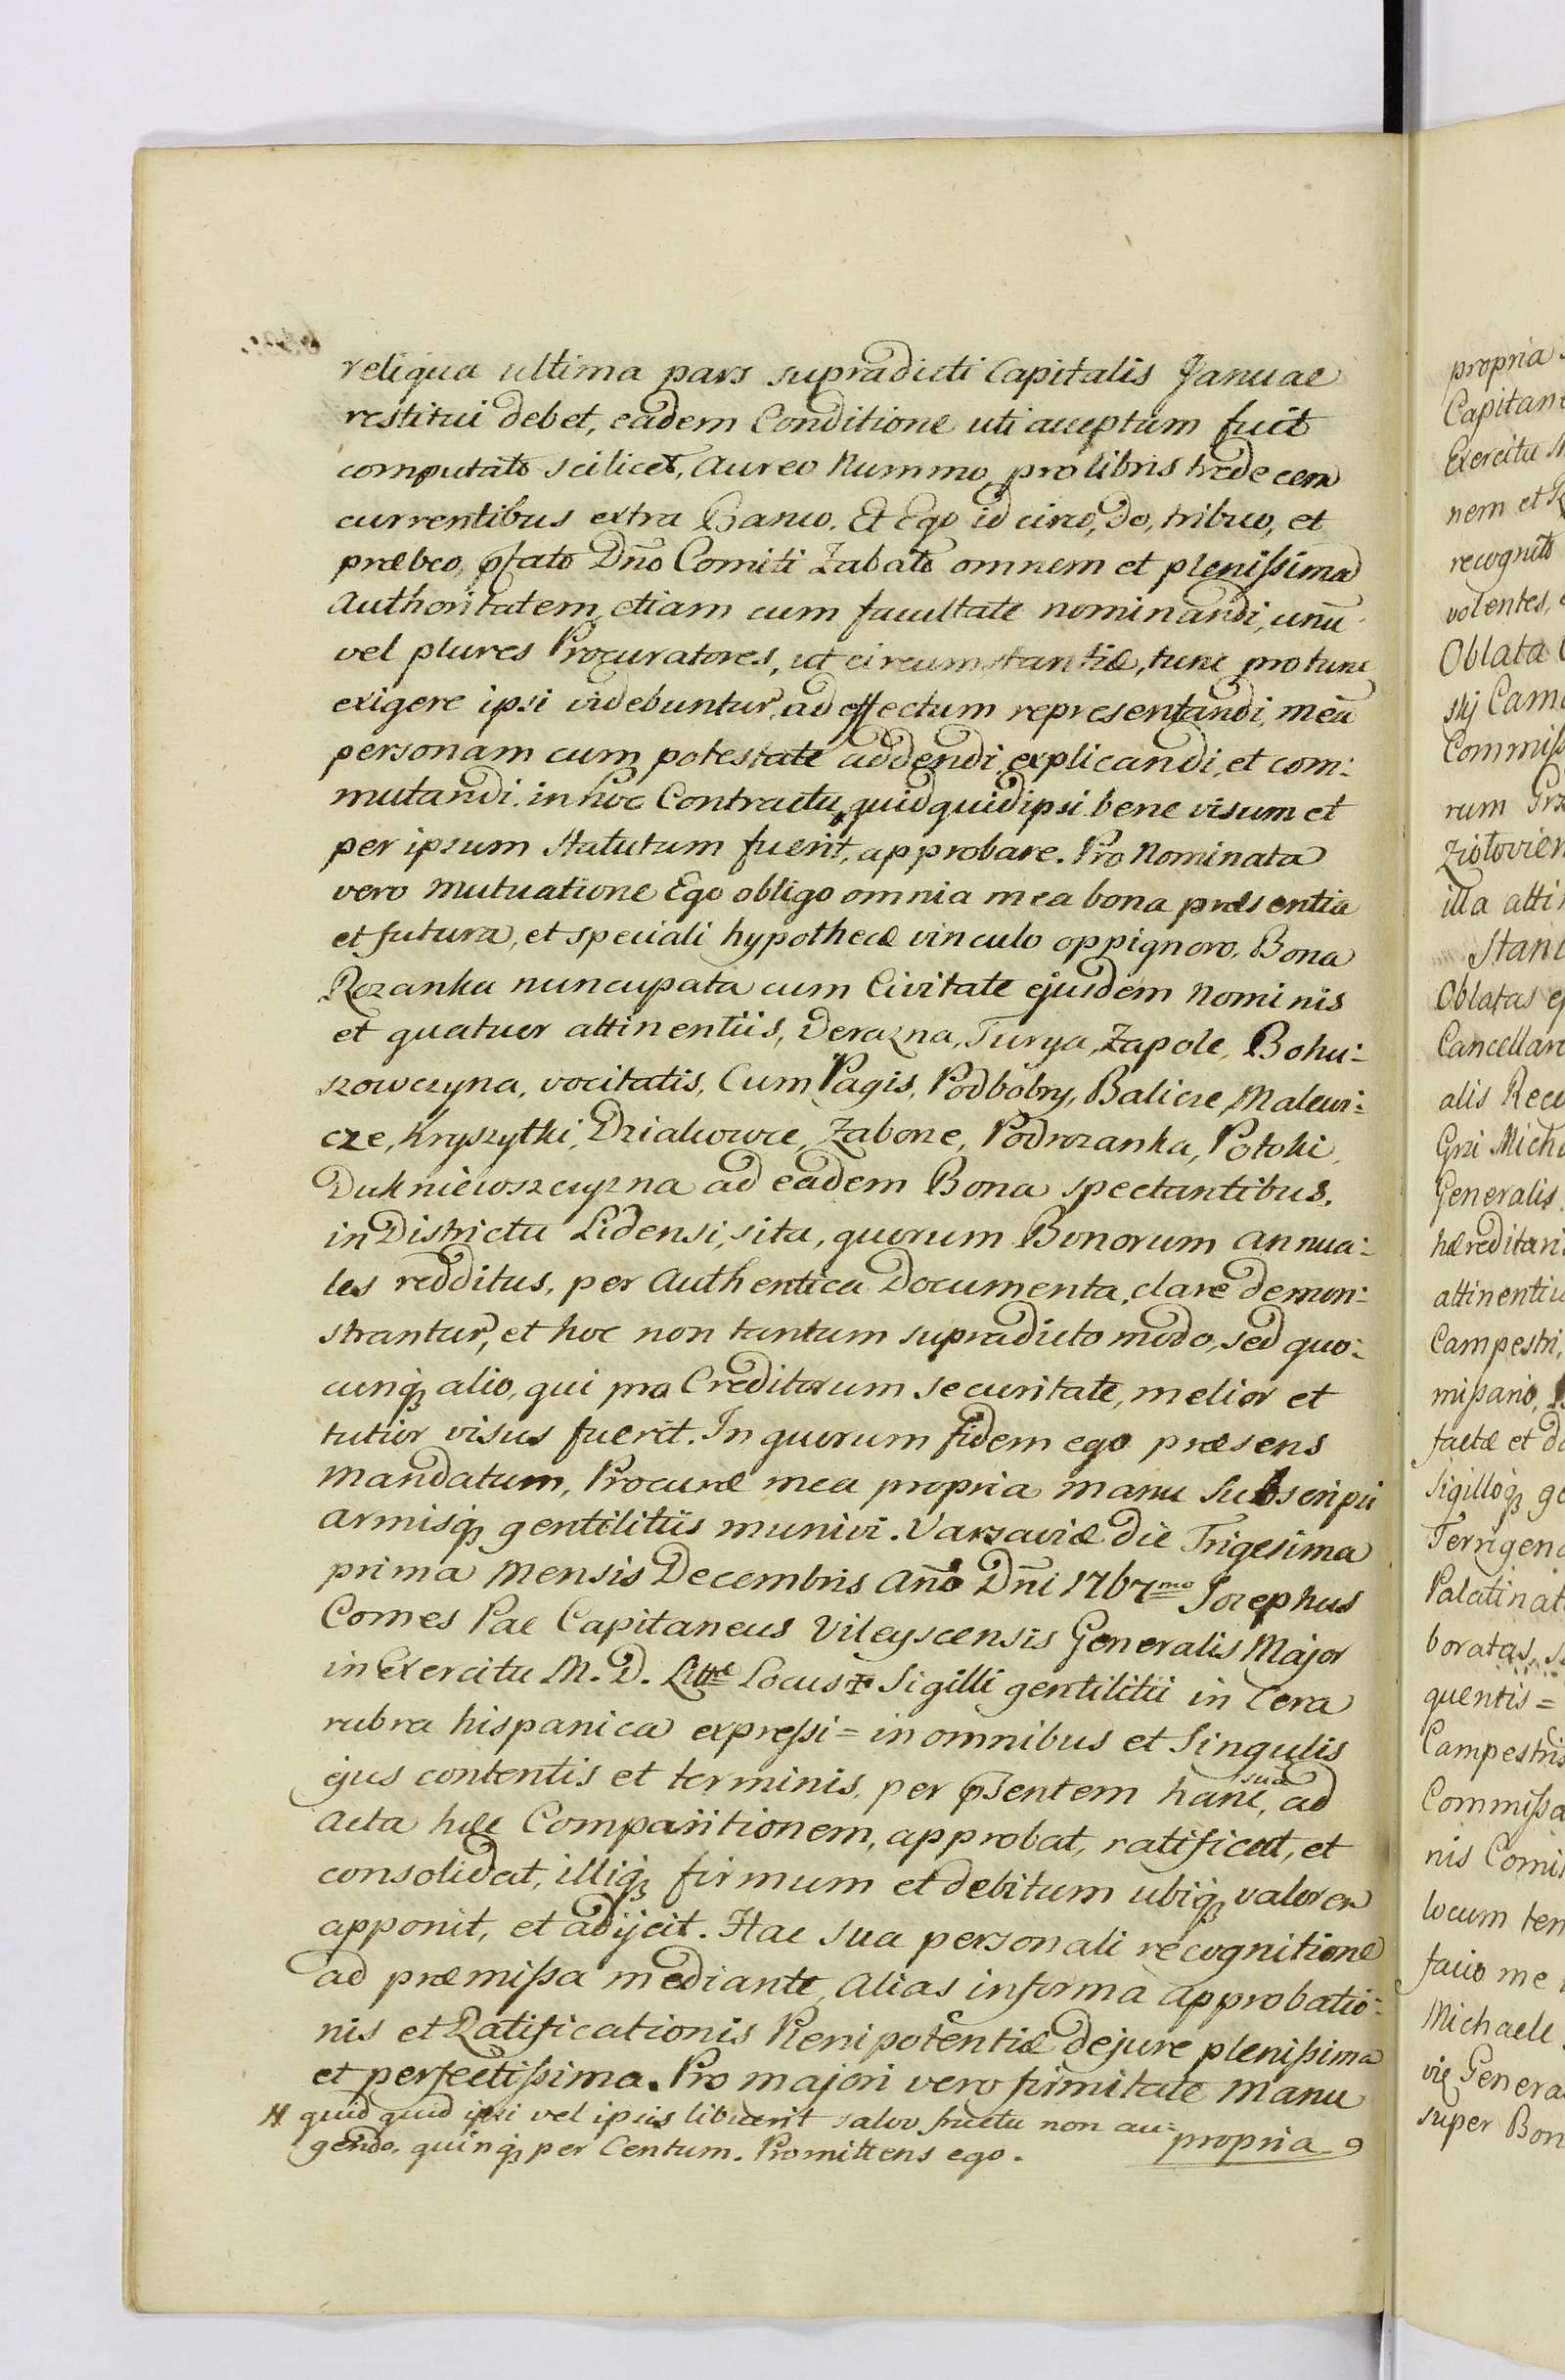 reliqua ultima pars supradicti Capitalis Januae
restitui debet, eadem Conditione uti acceptum fuit
computato scilicet, Aureo Nummo, pro libris tredecem
currentibus extra Banco. Et Ego id circo, do, tribuo, et
præbeo, pfato Dño Comiti Zabato omnem et pleniſsima
Authoritatem, etiam cum facultate nominandi, unū
vel plures Procuratores, ut circumstantiæ, tunc pro tunc
exigere ipsi videbuntur, ad effectum representandi, meā
personam cum potestate addendi, explicandi, et com:
mutandi. in hoc Contractu, quidquid ipsi bene visum et
per ipsum Statutum fuerit, approbare. Pro Nominata
vero Mutuatione Ego obligo omnia mea bona præsentia
et futura, et speciali hypothecæ vinculo oppignoro, Bona
Rozanka nuncupata cum Civitate ejusdem Nominis
et quatuor attinentiis, Derazna, Turya, Zapole, Bohu:
szowczyna, vocitatis, Cum Pagis, Podbobry, Balicze, Malewi:
cze, Kryszytki, Dziakowce, Zaborze, Podrozanka, Potoki,
Dukniewszczyzna ad eadem Bona spectantibus,
in Districtu Lidensi, sita, quorum Bonorum annua:
les redditus, per Authentica Documenta, clare demon:
strantur, et hoc non tantum supradicto modo, sed quo:
cunq3 alio, qui pro Creditorum securitate, melior et
tutior visus fuerit. In quorum fidem ego præsens
Mandatum, Procuræ mea propria manu Subscripsi
armisq3 gentilitiis munivi. Varsaviæ die Trigesima
prima Mensis Decembris Año Dñi 1767mo Josephus
Comes Pac Capitaneus Vileyscensis Generalis Major
in Exercitu M. D. Littræ Locus Sigilli gentilitii in Cera
rubra hispanica expreſsi = in omnibus et Singulis
ejus contentis et terminis, per p̄sentem hanc, suā ad
Acta hæc Comparitionem, approbat, ratificat, et
consolidat, illiq3 firmum et debitum ubiq3 valorem
apponit, et adijcit. Hac sua personali recognitione
ad præmiſsa mediante, Alias in forma Approbatio:
nis et Ratificationis Plenipotentiæ de jure pleniſsima
et perfectiſsima. Pro majori vero firmitate Manu
H quid quid ipsi vel ipsis libuerit salvo fructu non au:
gendo, quinq3 per Centum. Promittens ego.
propria
propria
Capitane
Exercitu M
nem et R
recognito
volentes,
Oblata
skj Cam
Commiſs
rum Grz
Ziotovien
illa atti
Stani
Oblatas ej
Cancellar
alis Rece
Grzi Micha
Generalis
hæreditari
attinentiis
Campestri,
miſsario,
factæ et d
Sigilloq3 ge
Terrigena
Palatinat
boratas, s
quentis =
Campestris
Commiſsa
nis Comi
locum ten
facio me
Michaele
viæ Genera
super Bon